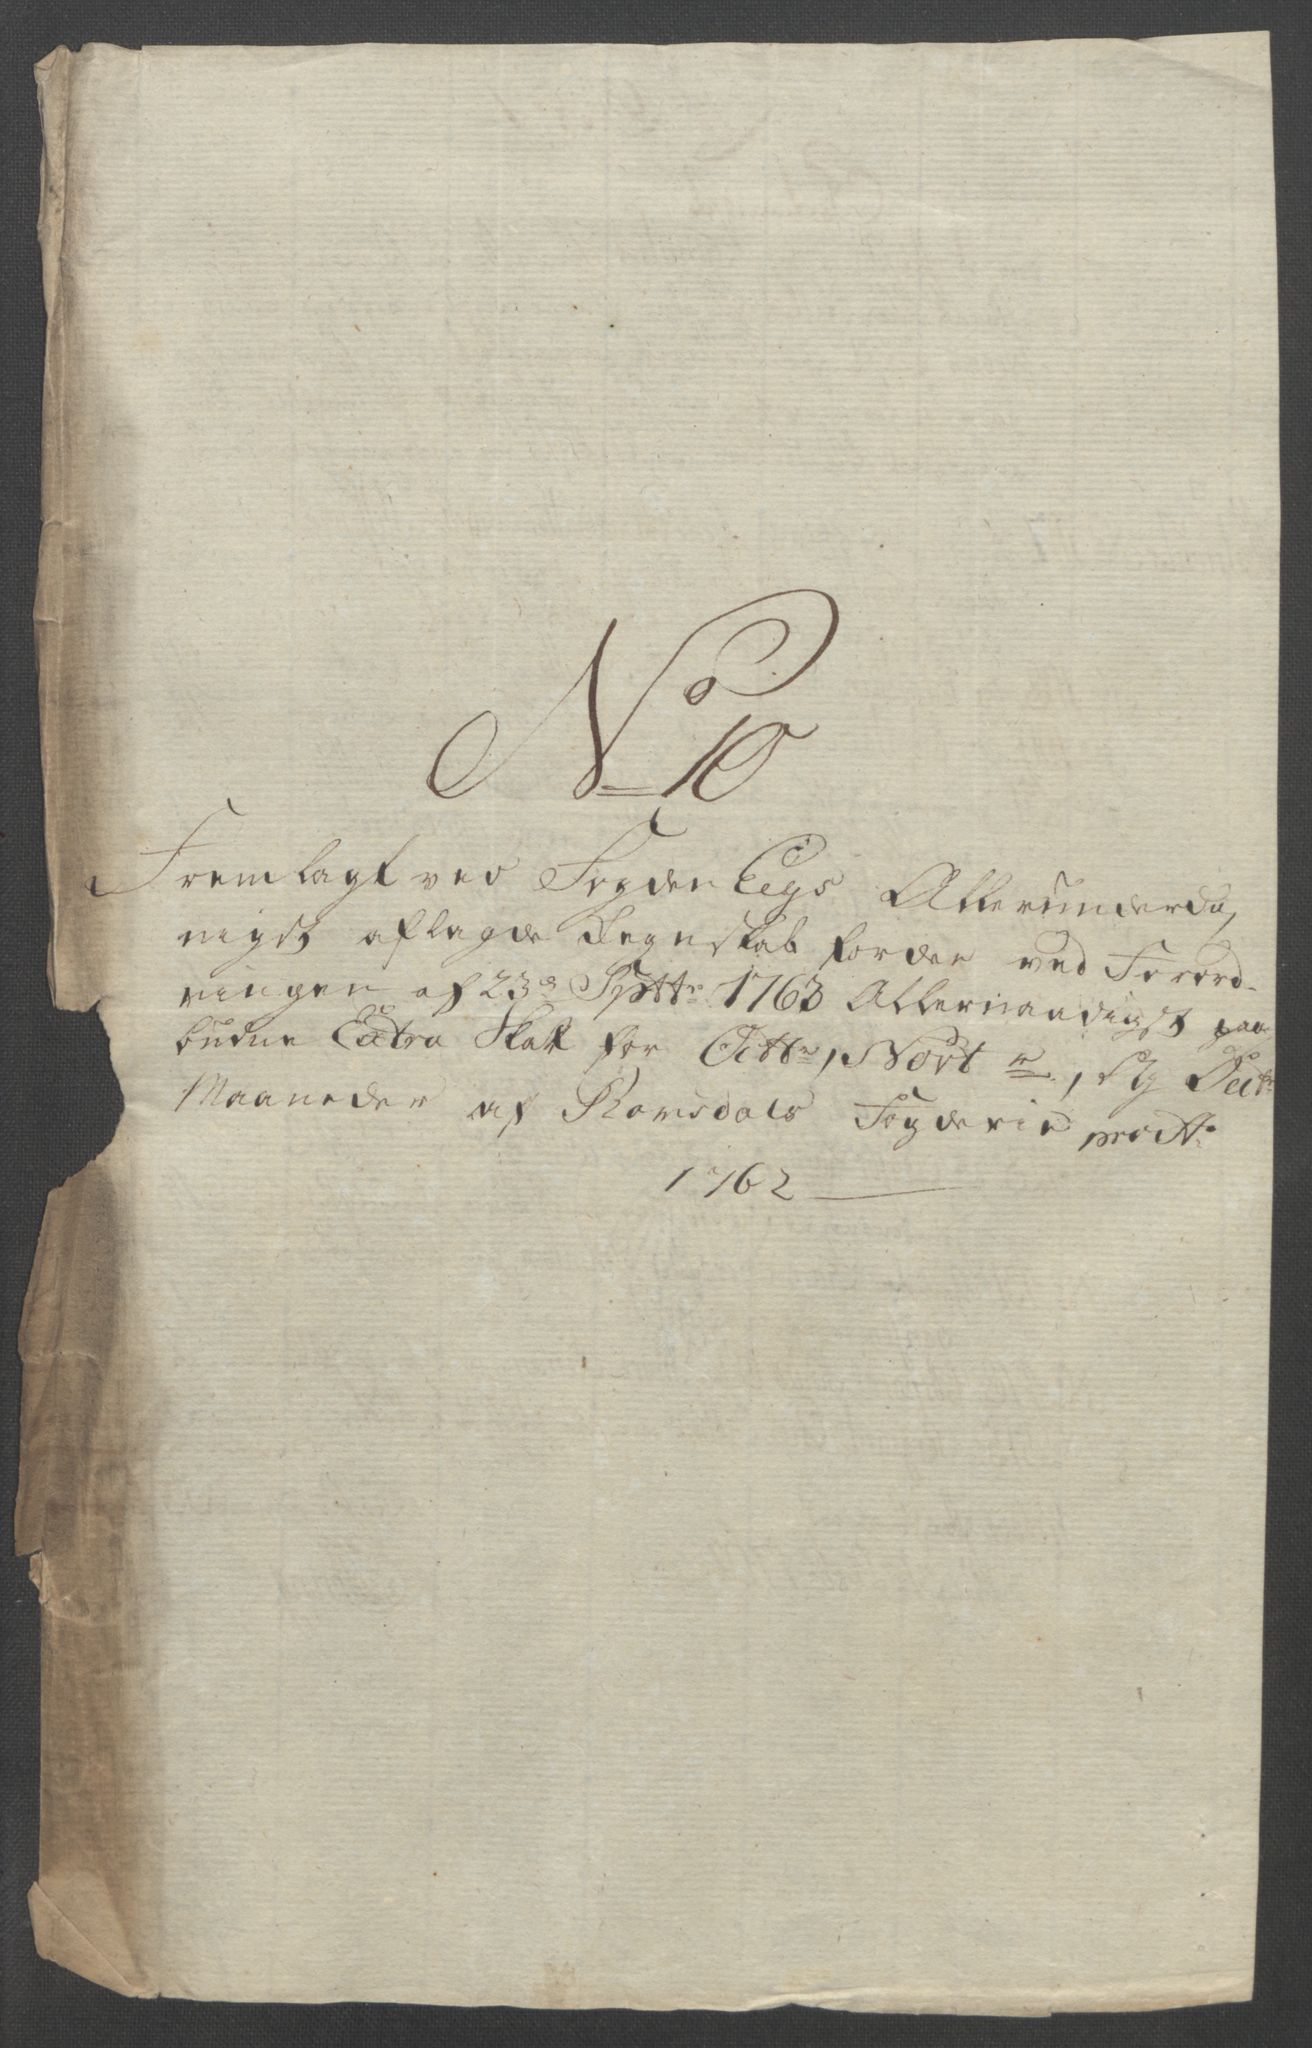 No 10
Fremlagt ved Fogden Eegs Allerunderdaʒ
nigst aflagde Regnskab for den ved Forord-
ningen af 23de Septtr 1762 Allernaadigst paa-
budne Extra Skatt for Octtr, Novt r, og Dectr
Maaneder af Romsdals Fogderie pro Ao
1762